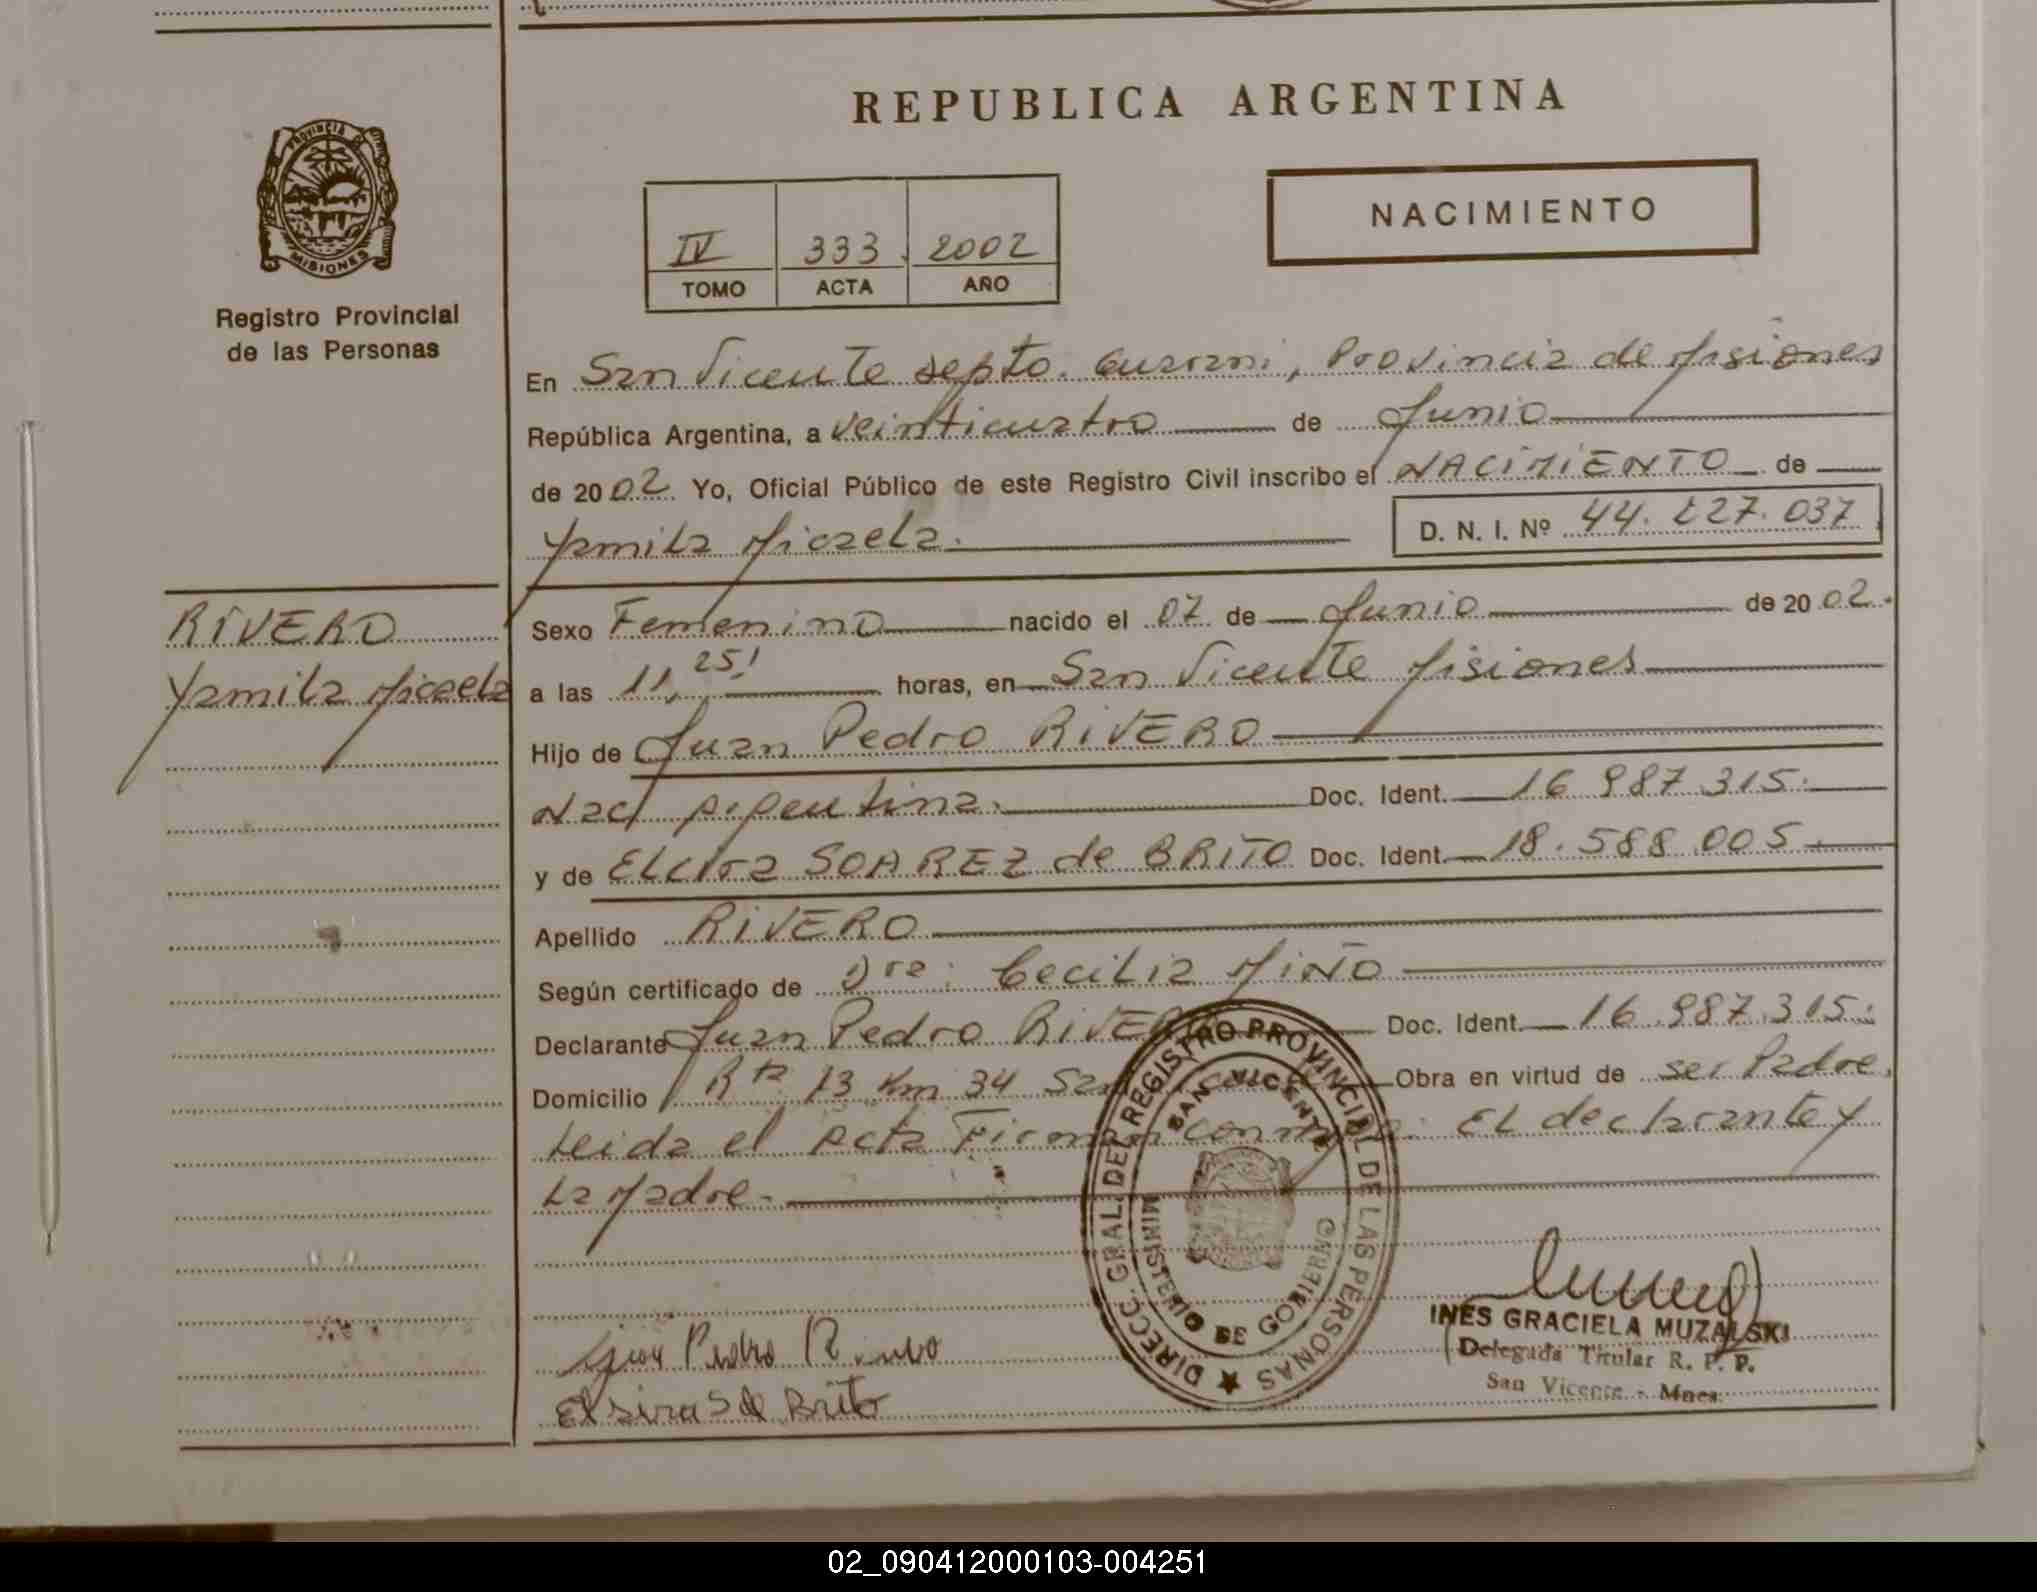 REPUBLICA ARGENTINA
PROVINCIA DE
MISIONES
Registro Provincial
de las Personas
IV 333 2002
TOMO ACTA AÑO
NACIMIENTO
En San Vicente Depto. Guarani, Provincia de Misiones
República Argentina, a veinticuatro de Junio
de 2002. Yo, Oficial Público de este Registro Civil inscribo el NACIMIENTO de
Yamila Micaela.
D. N. I. Nº 44.227.037
RIVERO
Yamila Micaela
Sexo Femenino nacido el 07 de Junio de 2002.
a las 11,25' horas, en San Vicente Misiones
Hijo de Juan Pedro RIVERO
Nac/ Argentina. Doc. Ident. 16.987.315.
y de ELCIRA SOAREZ de BRITO Doc. Ident. 18.588.005.
Apellido RIVERO
Según certificado de Dra: Cecilia MIÑO
Declarante Juan Pedro RIVERO Doc. Ident. 16.987.315.
Domicilio Rta 13 Km 34 San Vicente Obra en virtud de ser Padre.
Leida el Acta Firman conmigo: EL declarante y
La Madre.
DIRECC. GRAL. DEL REGISTRO PROVINCIAL DE LAS PERSONAS
SAN VICENTE
MINISTERIO DE GOBIERNO
Juan Pedro Rivero
Elsira S de Brito
INES GRACIELA MUZALSKI
Delegada Titular R. P. P.
San Vicente - Mnes.
02_090412000103-004251